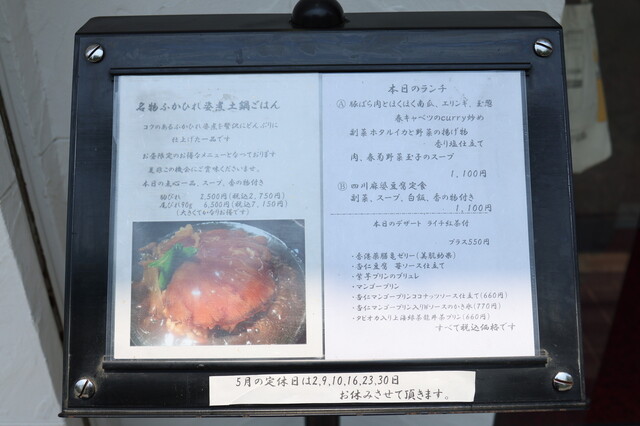 名物ふかひれ姿煮土鍋ごはん
コクのあるふかひれ姿煮を贅沢にどんぶりに
仕上げた一品です
お昼限定のお得なメニューとなっております
是非この機会にご賞味くださいませ。
本日の点心一品、スープ、香の物付き
胸びれ 2,500円(税込2,750円)
尾びれ90g 6,500円(税込7,150円)
(大きくてかなりお得です)
本日のランチ
Ⓐ 豚ばら肉とほくほく南瓜、エリンギ、玉葱
春キャベツのcurry炒め
副菜 ホタルイカと野菜の揚げ物
香り塩仕立て
肉、春菊野菜玉子のスープ
1,100円
Ⓑ 四川麻婆豆腐定食
副菜、スープ、白飯、香の物付き
1,100円
本日のデザート ライチ紅茶付
プラス550円
・香港亀膠ゼリー(美肌効果)
・杏仁豆腐 苺ソース仕立て
・紫芋プリンのブリュレ
・マンゴープリン
・杏仁マンゴープリンココナッツソース仕立て(660円)
・杏仁マンゴープリン入りWソースのかき氷(770円)
・タピオカ入り上海緑茶龍井茶プリン(660円)
すべて税込価格です
5月の定休日は2,9,10,16,23,30日
お休みさせて頂きます。